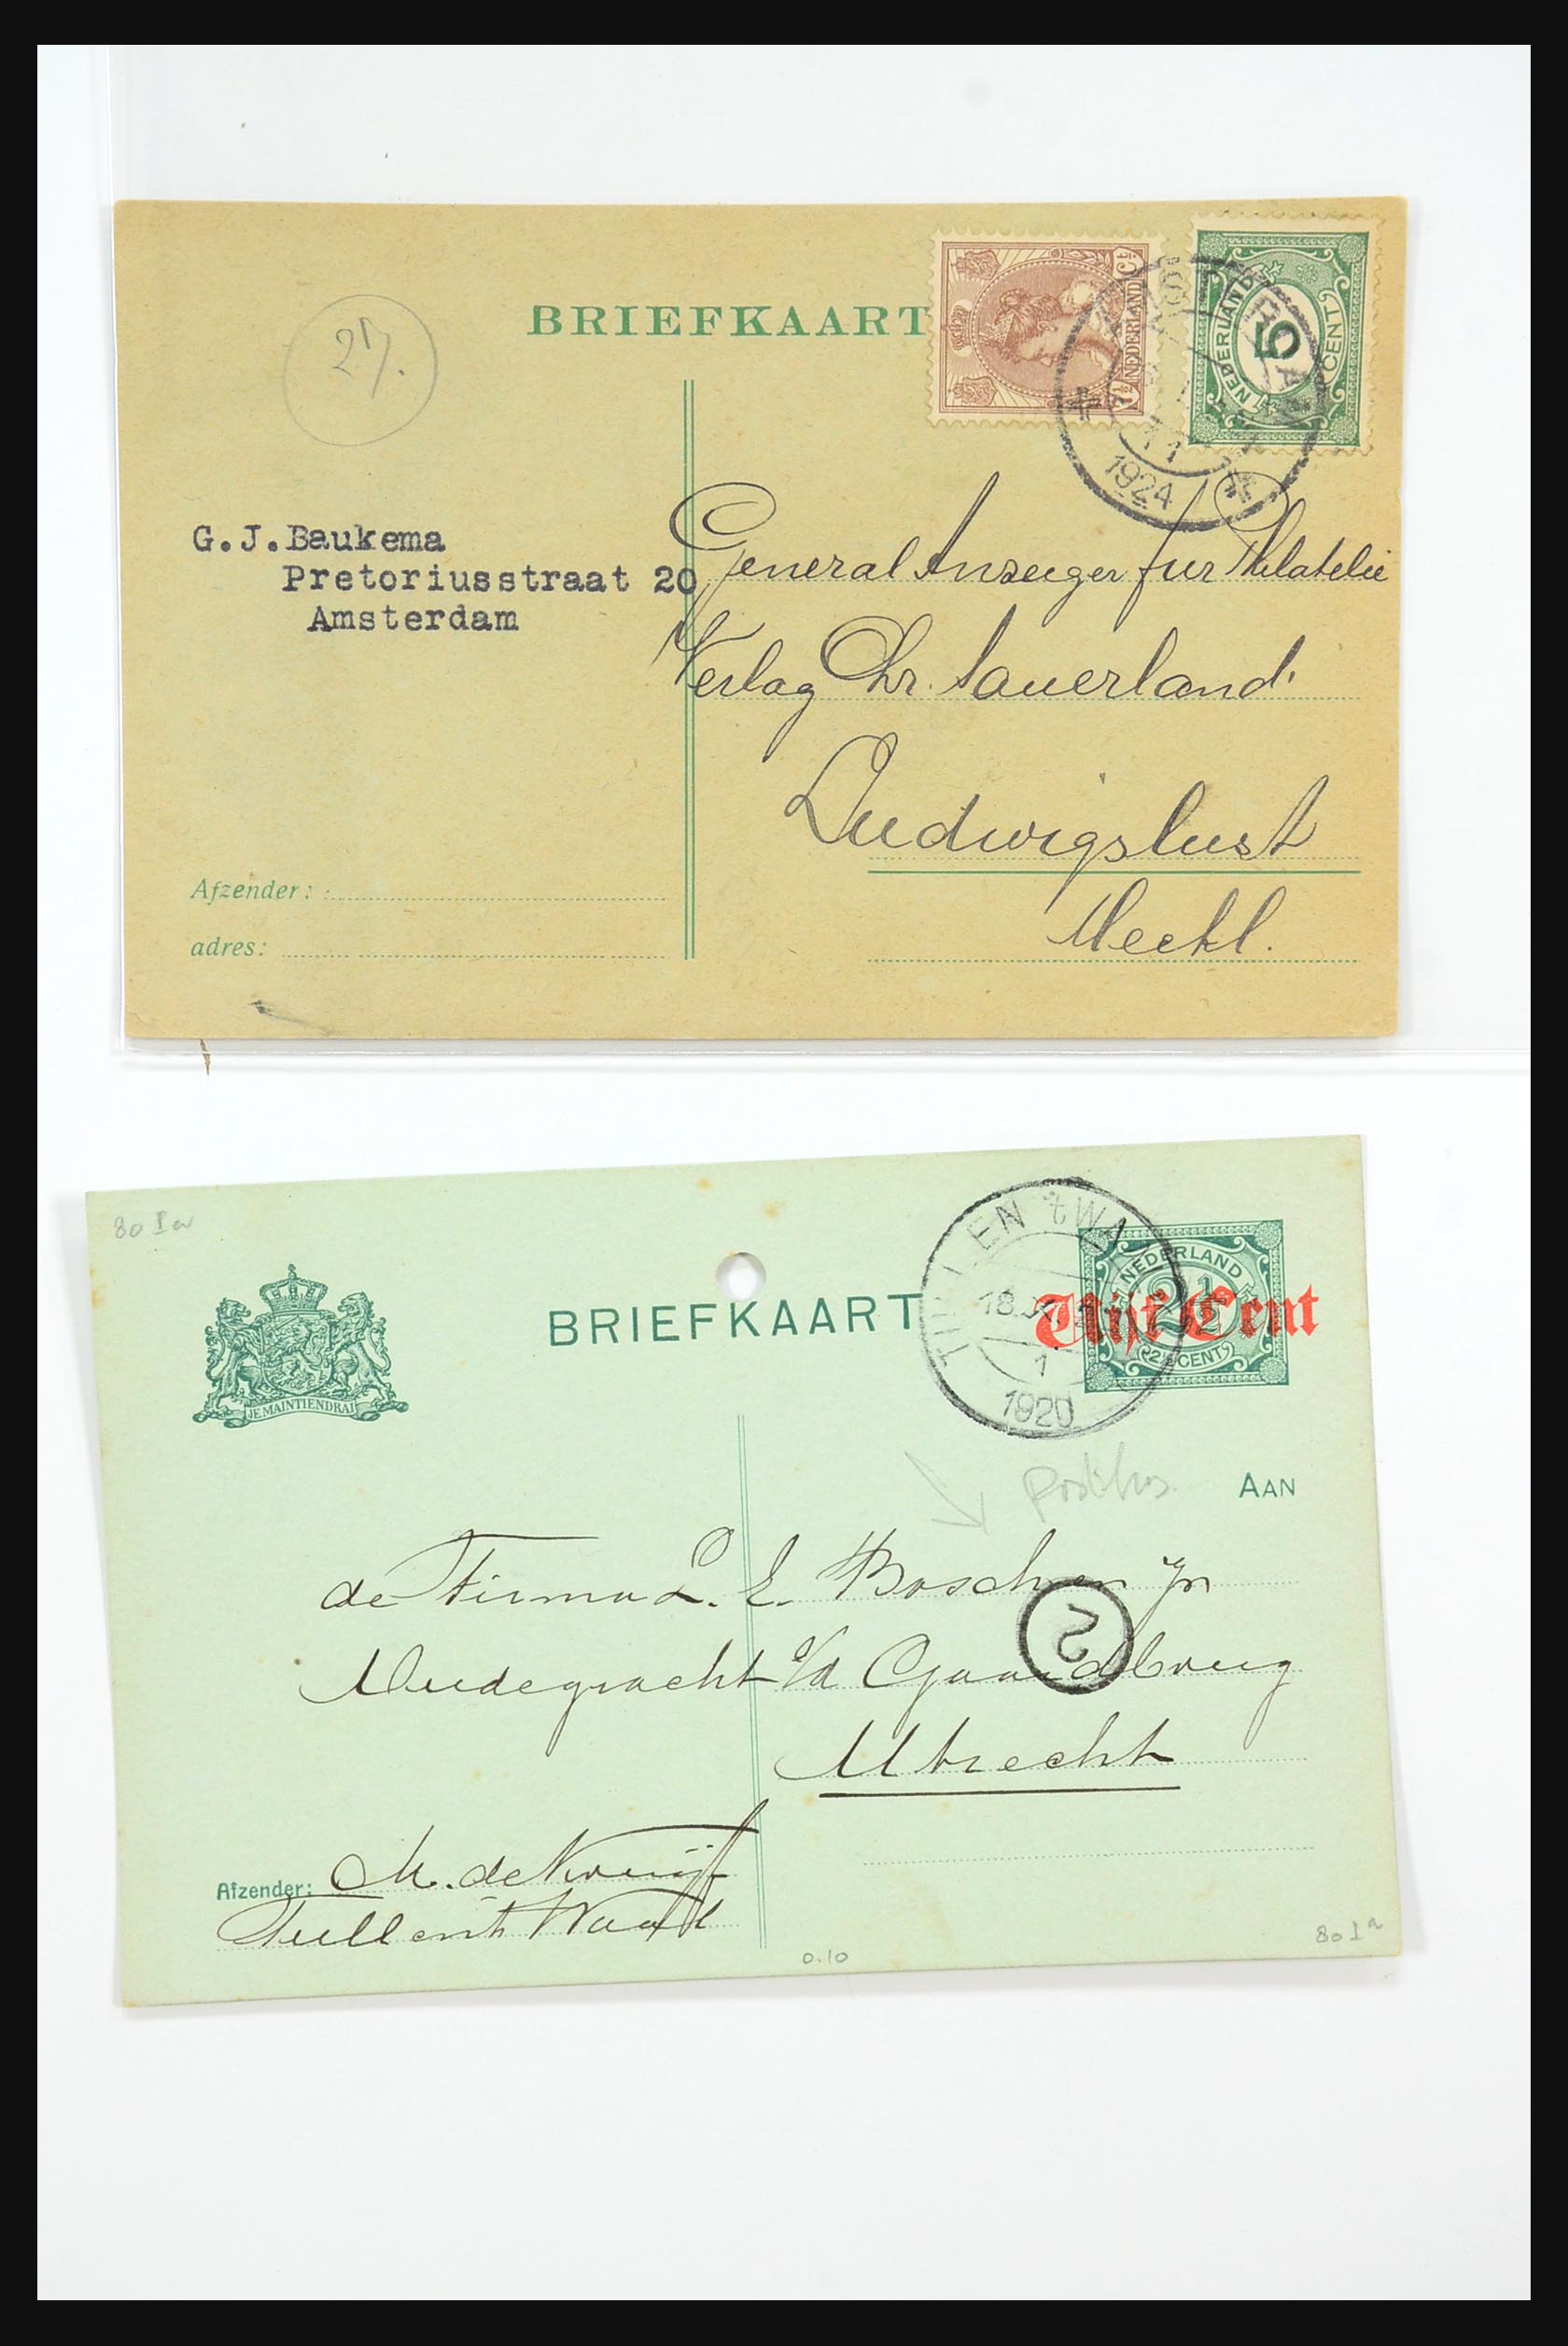 BRIEFKAART
27.
NEDERLAND
NEDERLAND
5
CENT
11
1924
G.J.Baukema
Pretoriusstraat 20
Amsterdam
General Anzeiger fur Philatelie
Verlag Chr. Sauerland.
Ludwigslust
Meckl.
Afzender:
adres:
80 Ia
BRIEFKAART
JE MAINTIENDRAI
EN 't WA
18
1
1920
NEDERLAND
2½
2½ CENT
Vijf Cent
AAN
de Firma L. E. Bosch en Jn
Oudegracht o/d Gaardbrug
2
Utrecht
Afzender: M. de Kruijf
Tull en 't Waal
0.10
80 Ia